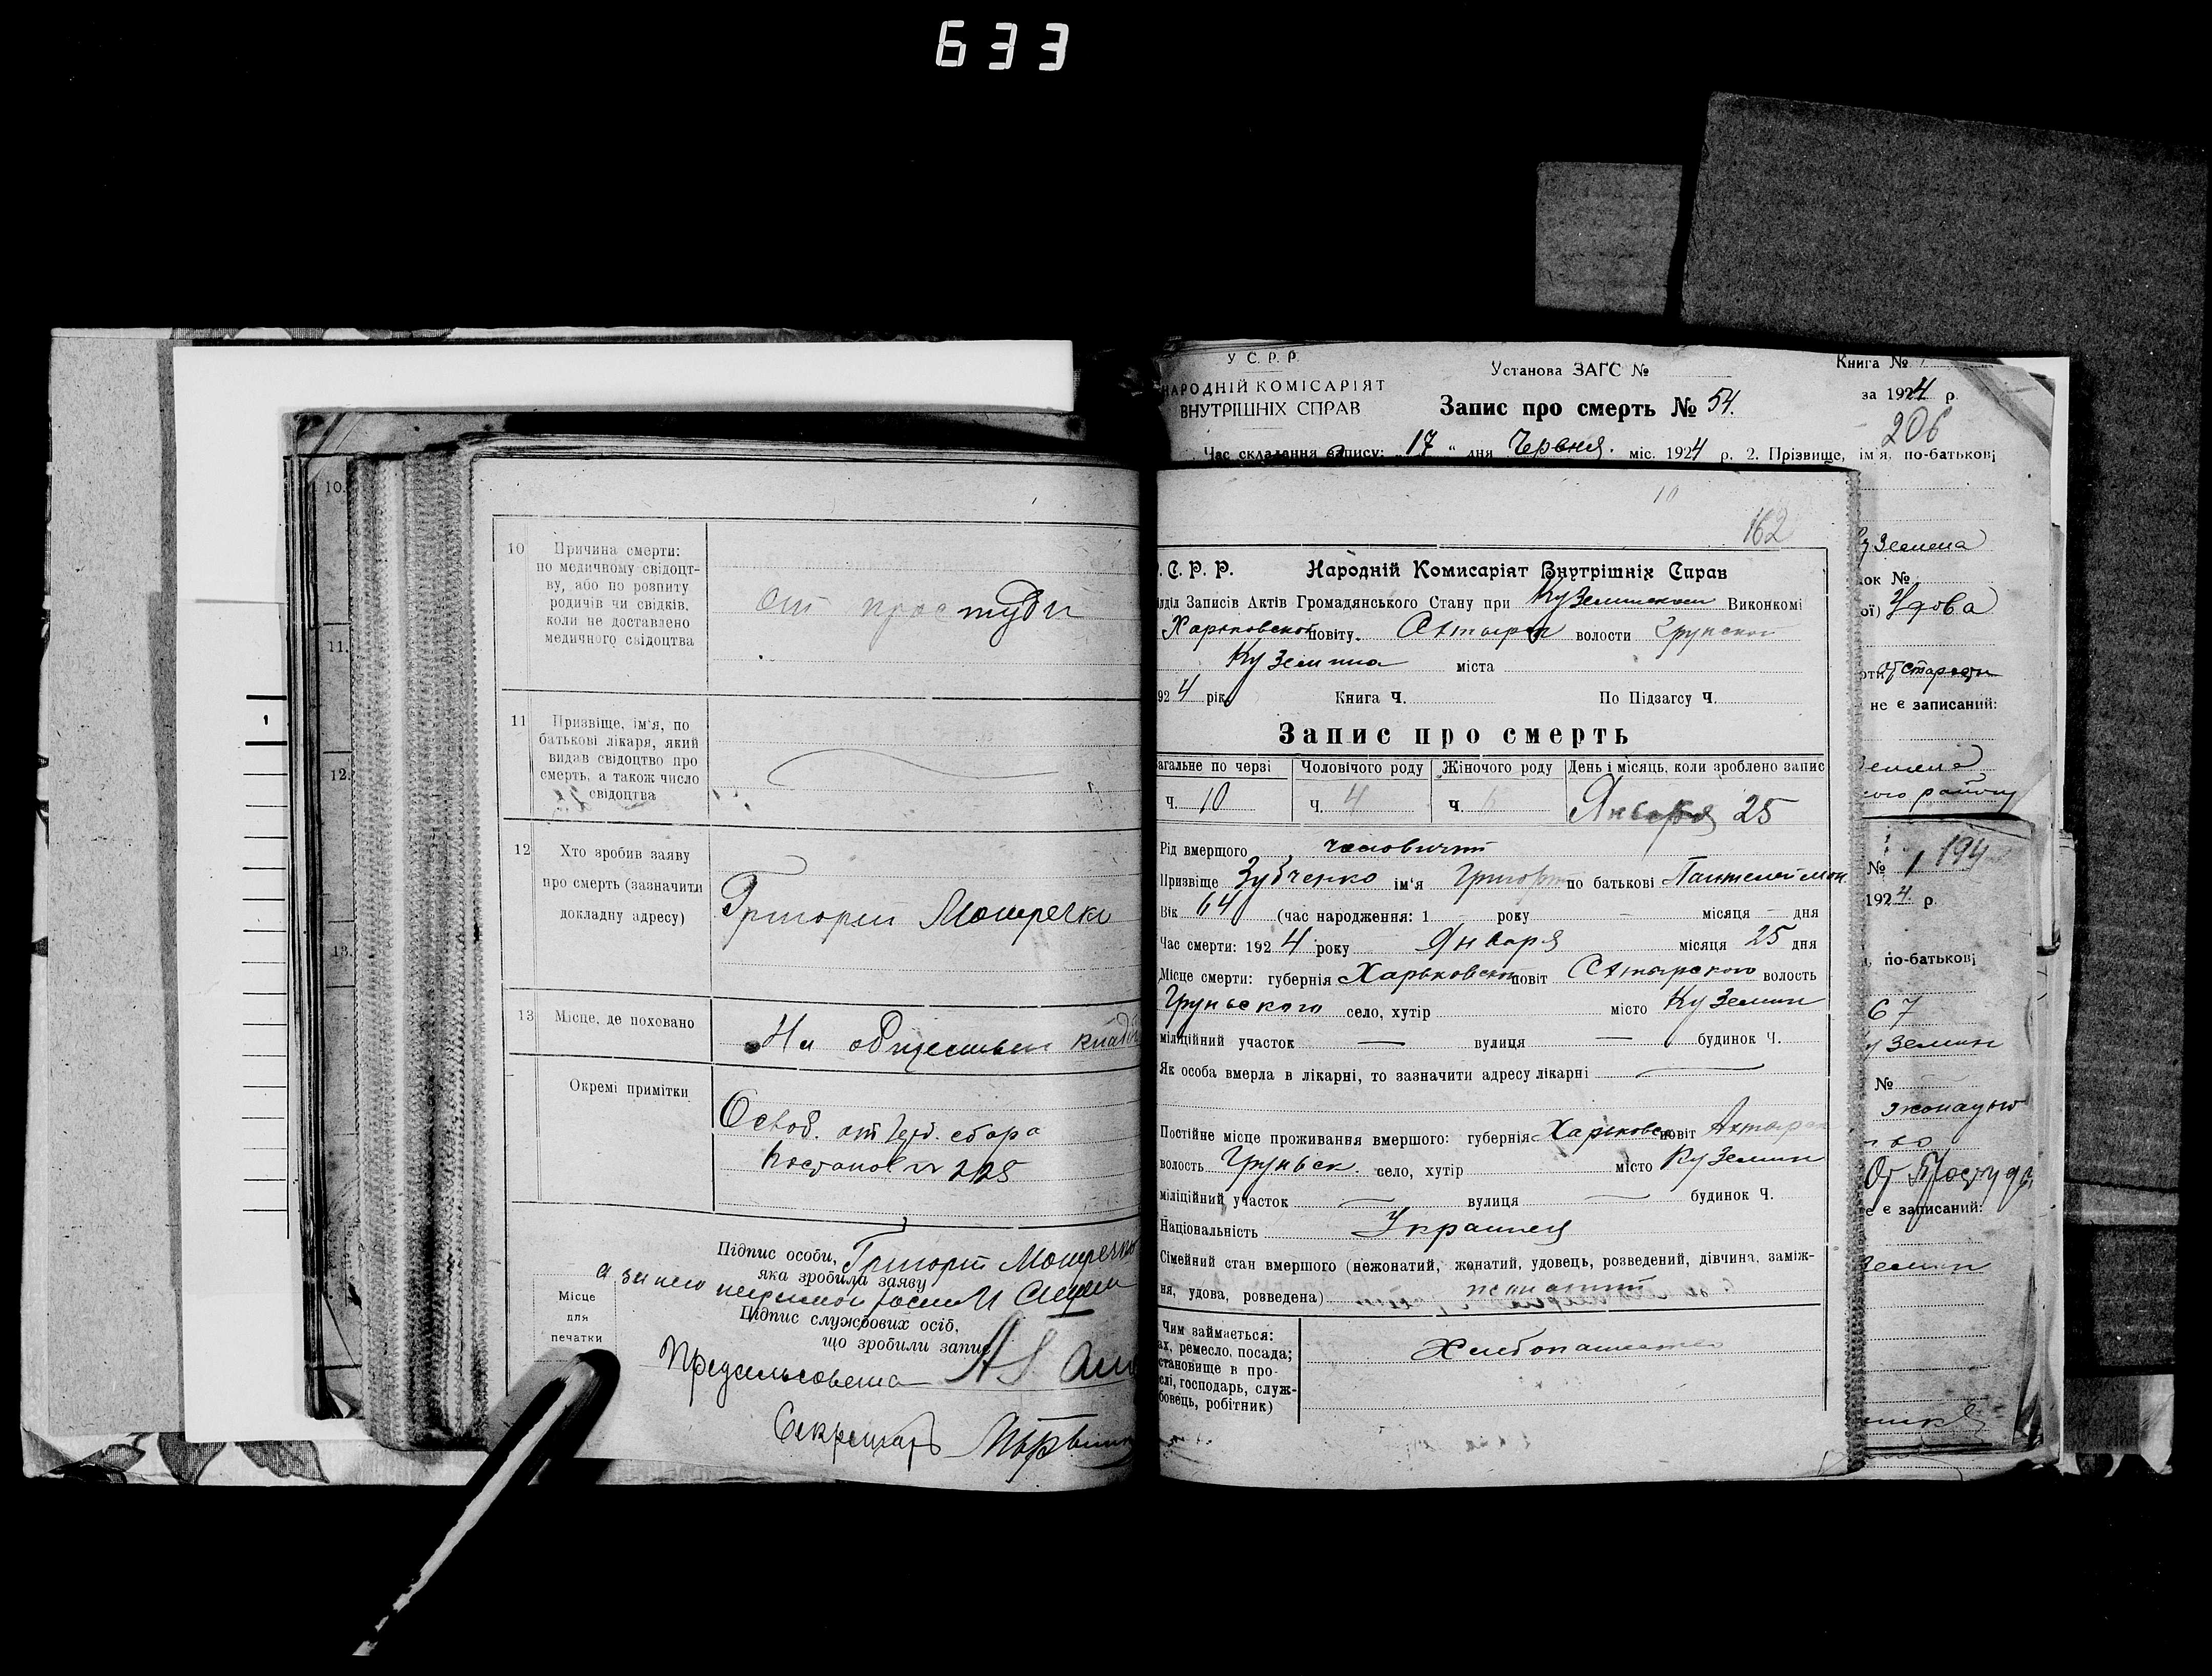 633
10.
11.
12.
13.
10 Причина смерти:
по медичному свідоцт-
ву, або по розпиту
родичів чи свідків,
коли не доставлено
медичного свідоцтва
от простуди
11 Призвіще, ім'я, по
батькові лікаря, який
видав свідоцтво про
смерть, а також число
свідоцтва
12 Хто зробив заяву
про смерть (зазначити
докладну адресу)
Григорий
13 Місце, де поховано
На обществен кладб
Окремі примітки
Освоб. от герб. сбора
Постанов
Підпис особи, Григорий
яка зробила заяву
а за него неграмот
Підпис службових осіб,
що зробили запис
Місце
для
печатки
Предсельсовета
Секретарь
У С. Р. Р.
НАРОДНІЙ КОМІСАРІЯТ
ВНУТРІШНІХ СПРАВ
Установа ЗАГС №
Книга №
Запис про смерть № 54.
за 1924 р.
206
Час складання запису: 17 " дня Червня. міс. 1924 р. 2. Прізвище, ім'я, по-батькові
10
162
С. Р. Р. Народній Комисаріят Внутрішніх Справ
ідділ Записів Актів Громадянського Стану при Виконкомі
Харьковской повіту. Ахтырск волости Грунской
Куземина міста
924 рік Книга Ч. По Підзагсу Ч.
Запис про смерть
Загальне по черзі Чоловічого роду Жіночого роду День і місяць, коли зроблено запис
ч. 10 ч. 4 ч. Января 25
Рід вмерщого
Призвіще Зубченко ім'я Григорій по батькові Пантелеймон
Вік 64 (час народження: 1 року місяця дня
Час смерти: 1924 року Января місяця 25 дня
Місце смерти: губернія Харьковск повіт Ахтырского волость
Груньского село, хутір місто Куземин
міліційний участок вулиця будинок Ч.
Як особа вмерла в лікарні, то зазначити адресу лікарні
Постійне місце проживання вмершого: губернія Харьковск повіт Ахтырск
волость Груньск. село, хутір місто Куземин
міліційний участок вулиця будинок Ч.
Національність Украинец
Сімейний стан вмершого (нежонатий, жонатий, удовець, розведений, дівчина, заміж-
ня, удова, розведена)
Чим займається:
ах, ремесло, посада;
становище в про-
слі, господарь, служ-
бовець, робітник)
Хлебопашество
Куземена
ок №
ої) Удова
рти От Старости
не є записаний:
ого району
№ 1 194
1924. р.
, по-батькові
67
уземин
№
От Простуды
е є записаний:
земин